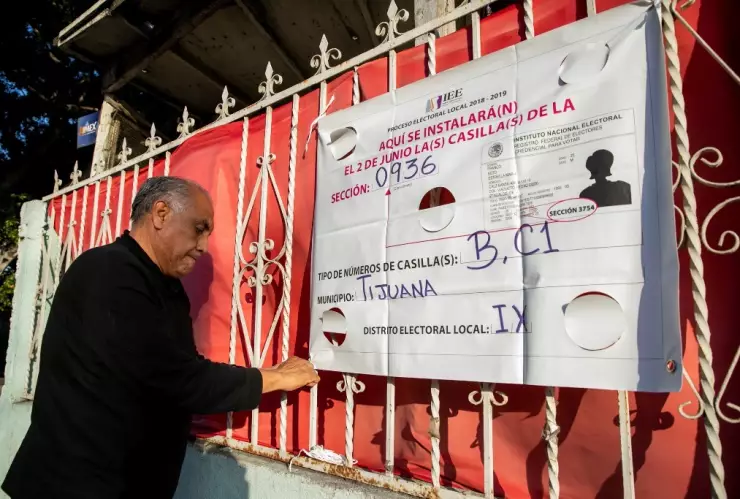 IEE
PROCESO ELECTORAL LOCAL 2018 - 2019
AQUÍ SE INSTALARÁ(N)
EL 2 DE JUNIO LA(S) CASILLA(S) DE LA
SECCIÓN: 0936
INSTITUTO NACIONAL ELECTORAL
REGISTRO FEDERAL DE ELECTORES
CREDENCIAL PARA VOTAR
SECCIÓN 3754
TIPO DE NÚMEROS DE CASILLA(S): B, C1
MUNICIPIO: TIJUANA
DISTRITO ELECTORAL LOCAL: IX